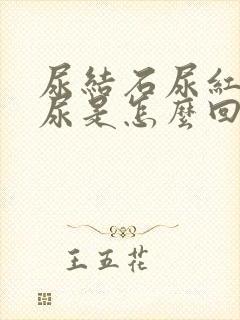 尿結石尿紅
尿是怎麼回
王五花